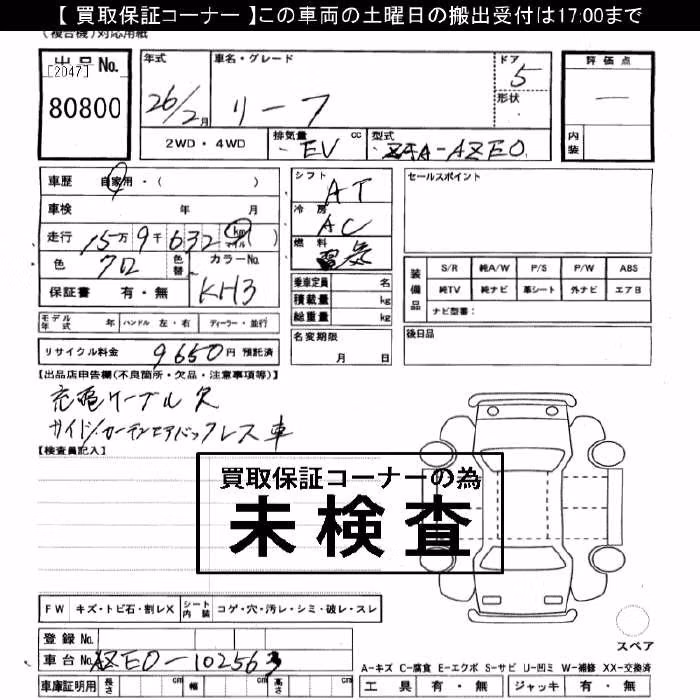 【 買取保証コーナー 】この車両の土曜日の搬出受付は17:00まで
(複合機)対応用紙
出品No.
[2047]
80800
年式
26/2月
車名・グレード
リーフ
ドア
5
形状
評価点
一
内装
2WD・4WD
排気量 EV cc
型式 ZAA-AZE0
車歴 自家用・( )
車検 年 月
走行 15万9千632 km マイル ( )
色 クロ 色替 カラーNo. KH3
保証書 有・無
モデル年式 年 ハンドル 左・右 ディーラー・並行
リサイクル料金 9650円 預託済
シフト AT
冷房 AC
燃料 電気
乗車定員 名
積載量 kg
総重量 kg
名変期限
月 日
セールスポイント
装備品
S/R 純A/W P/S P/W ABS
純TV 純ナビ 革シート 外ナビ エアB
ナビ型番:
後日品
【出品店申告欄(不良箇所・欠品・注意事項等)】
充電ケーブル欠
サイド/カーテンエアバックレス車
【検査員記入】
買取保証コーナーの為
未検査
FW キズ・トビ石・割レX シート内装 コゲ・穴・汚レ・シミ・破レ・スレ
登録No.
車台No. AZE0-102563
車庫証明用 長さ cm 幅 cm 高さ cm
スペア
A-キズ C-腐食 E-エクボ S-サビ U-凹ミ W-補修 XX-交換済
工具 有・無 ジャッキ 有・無